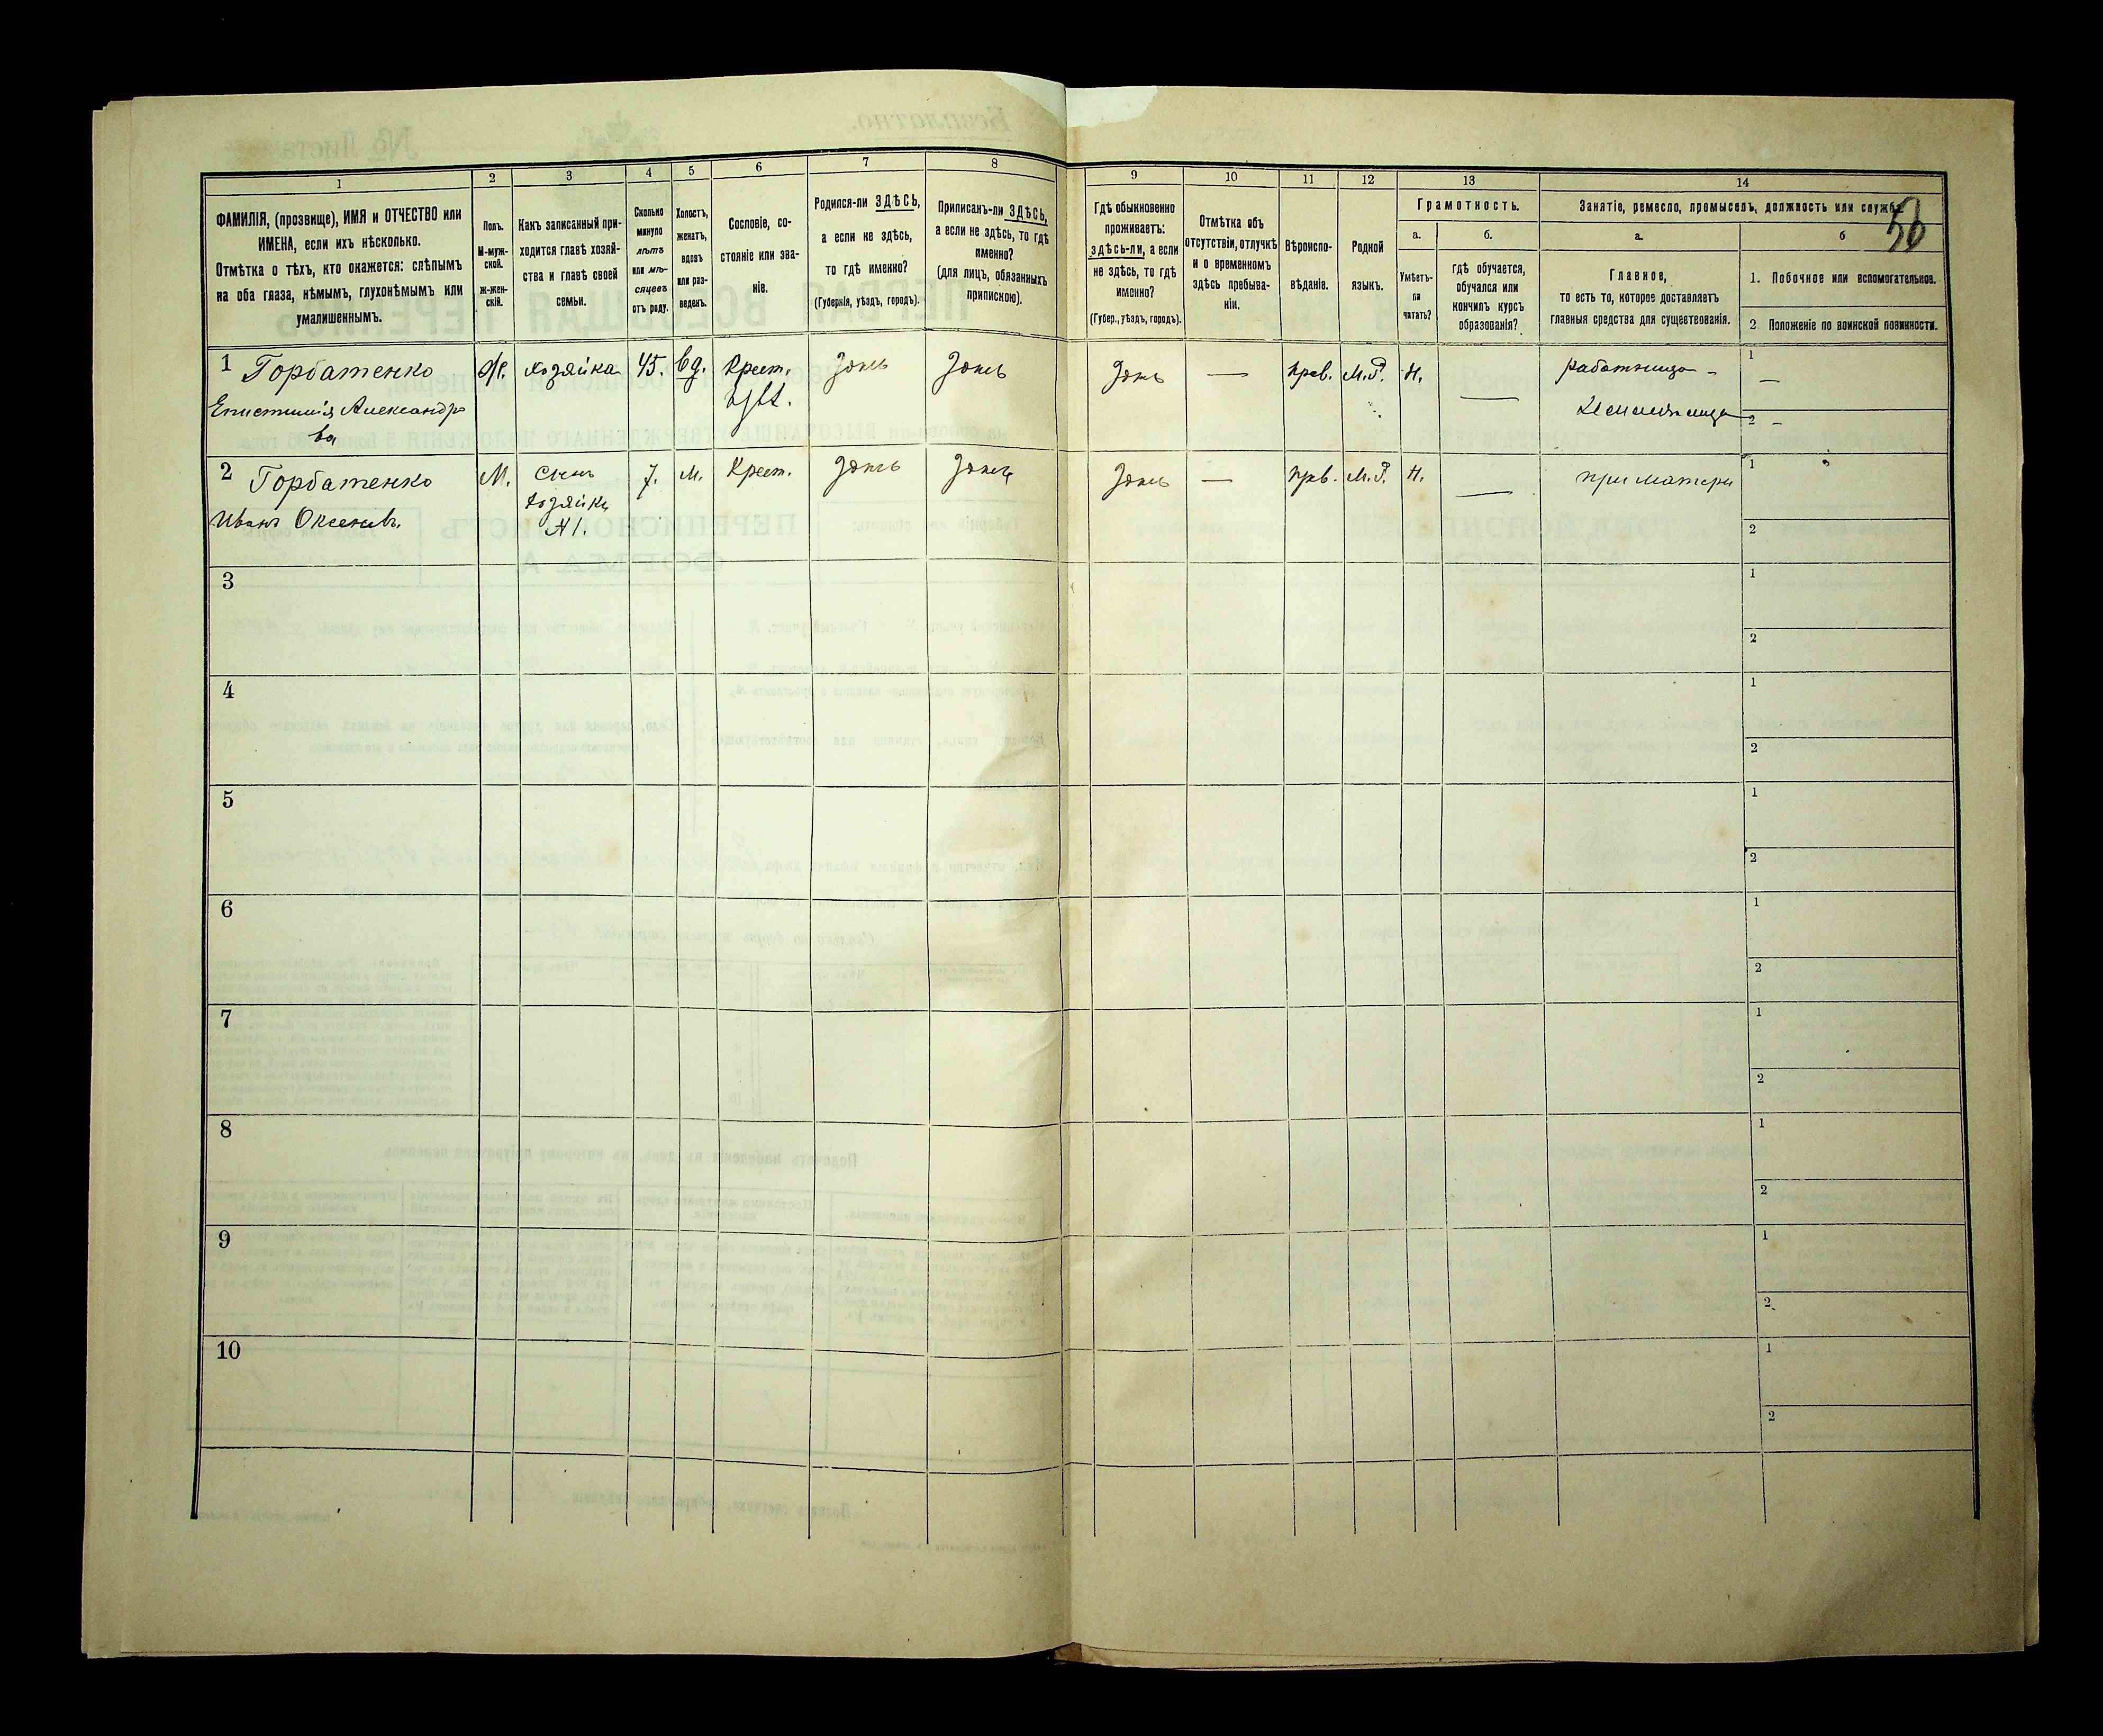 1
2
3
4
5
6
7
8
ФАМИЛІЯ, (прозвище), ИМЯ и ОТЧЕСТВО или
ИМЕНА, если ихъ нѣсколько.
Отмѣтка о тѣхъ, кто окажется: слѣпымъ
на оба глаза, нѣмымъ, глухонѣмымъ или
умалишеннымъ.
Полъ.
М-муж-
ской.
Ж-жен-
скій.
Какъ записанный при-
ходится главѣ хозяй-
ства и главѣ своей
семьи.
Сколько
минуло
лѣтъ
или мѣ-
сяцевъ
отъ роду.
Холостъ,
женатъ,
вдовъ
или раз-
веденъ.
Сословіе, со-
стояніе или зва-
ніе.
Родился-ли ЗДѢСЬ,
а если не здѣсь,
то гдѣ именно?
(Губернія, уѣздъ, городъ).
Приписанъ-ли ЗДѢСЬ,
а если не здѣсь, то гдѣ
именно?
(для лицъ, обязанныхъ
припискою).
9
10
11
12
13
14
Гдѣ обыкновенно
проживаетъ:
здѣсь-ли, а если
не здѣсь, то гдѣ
именно?
(Губер., уѣздъ, городъ).
Отмѣтка объ
отсутствіи, отлучкѣ
и о временномъ
здѣсь пребыва-
ніи.
Вѣроиспо-
вѣданіе.
Родной
языкъ.
Грамотность.
а.
б.
Умѣетъ-
ли
читать?
гдѣ обучается,
обучался или
кончилъ курсъ
образованія?
Занятіе, ремесло, промыселъ, должность или служба.
а.
б
Главное,
то есть то, которое доставляетъ
главныя средства для существованія.
1. Побочное или вспомогательное.
2 Положеніе по воинской повинности.
1 Горбатенко
Александро
ва
Ж.
хозяйка
45.
вд.
Крест.
Здѣсь
Здѣсь
Здѣсь
—
Прав.
М.Р.
Н.
—
работница -
1
—
2 -
2 Горбатенко
Иванъ
М.
Сынъ
хозяйки
№1.
7.
Крест.
Здѣсь
Здѣсь
Здѣсь
—
Прв.
М.Р.
Н.
—
при матери
1
2
3
1
2
4
1
2
5
1
2
6
1
2
7
1
2
8
1
2
9
1
2
10
1
2